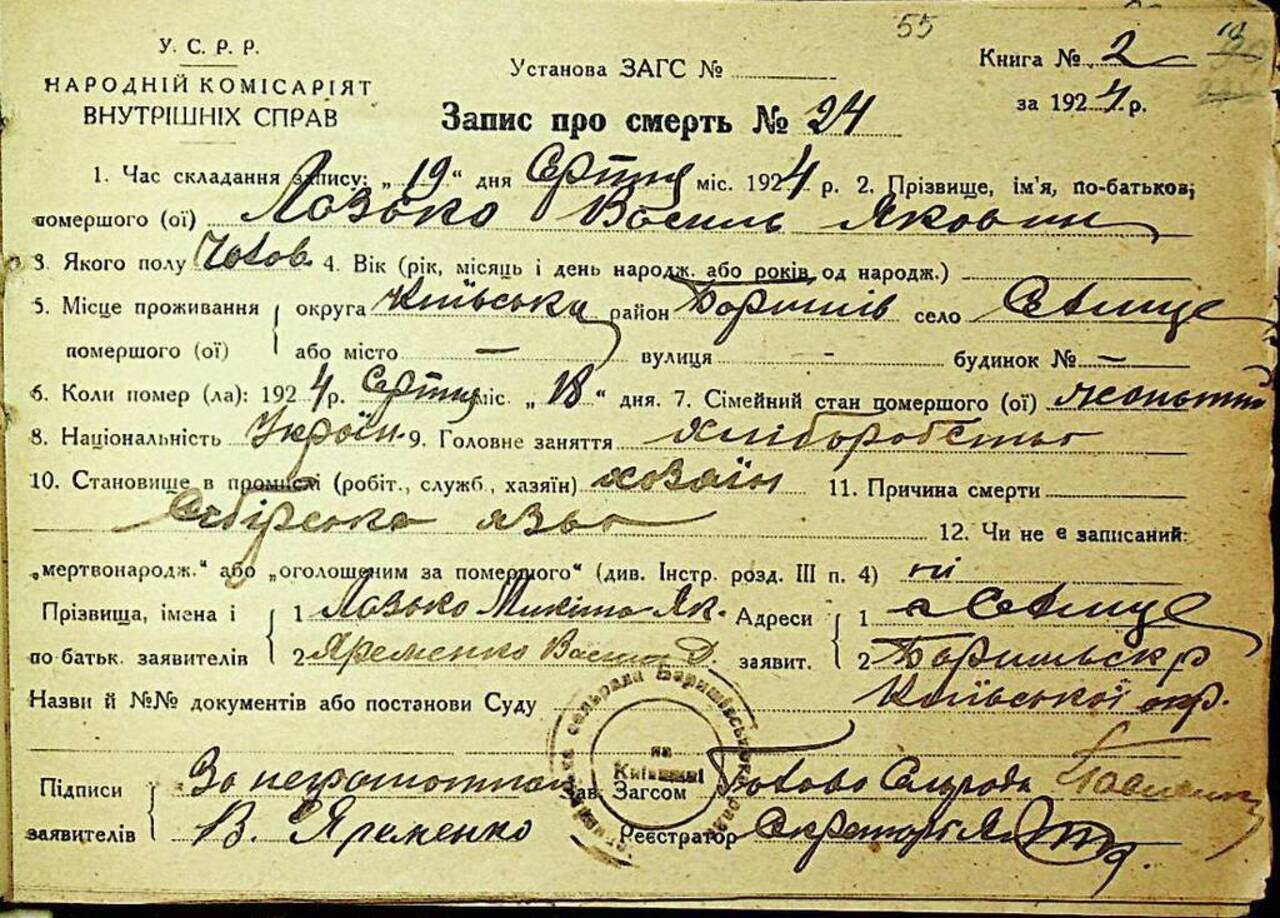 55
У. С. Р. Р.
НАРОДНІЙ КОМІСАРІЯТ
ВНУТРІШНІХ СПРАВ
Установа ЗАГС №
Книга № 2
за 1924 р.
Запис про смерть № 24
1. Час складання запису: „19“ дня Серпня міс. 1924 р. 2. Прізвище, ім'я, по-батьков,
помершого (ої) Лазько Василь Якович
3. Якого полу Чолов. 4. Вік (рік, місяць і день народж. або років од народж.)
5. Місце проживання помершого (ої) округа Київська район Баришів село Селище
або місто — вулиця - будинок № —
6. Коли помер (ла): 1924 р. Серпня міс. „18“ дня. 7. Сімейний стан помершого (ої)
8. Національність Україн. 9. Головне заняття хліборобство
10. Становище в промислі (робіт., служб., хазяїн) хазяїн 11. Причина смерти
Сибірська язва 12. Чи не є записаний:
„мертвонародж.“ або „оголошеним за помершого“ (див. Інстр. розд. III п. 4) ні
Прізвища, імена і по батьк. заявителів 1 Лазько Микита Як. Адреси заявит. 1 с Селище
2 Яременко Василь Д. 2 Баришівськ р
Назви й №№ документів або постанови Суду Київської окр.
Підписи заявителів За неграмотн Зав. Загсом Голова Сільради
В. Яременко Реєстратор Секретар
сельрада Баришівського
на Київщині